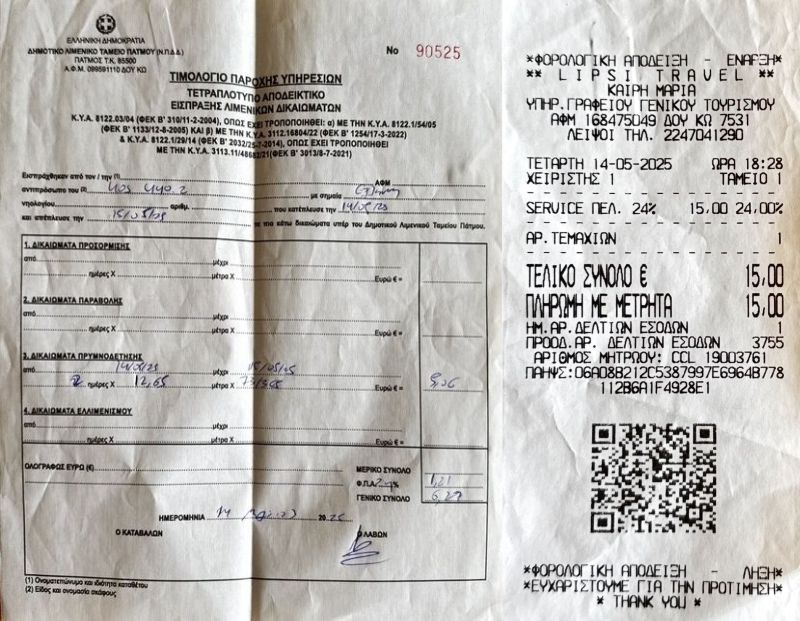 ΕΛΛΗΝΙΚΗ ΔΗΜΟΚΡΑΤΙΑ
ΔΗΜΟΤΙΚΟ ΛΙΜΕΝΙΚΟ ΤΑΜΕΙΟ ΠΑΤΜΟΥ (Ν.Π.Δ.Δ)
ΠΑΤΜΟΣ Τ.Κ. 85500
Α.Φ.Μ. 099591110 ΔΟΥ ΚΩ
No 90525
ΤΙΜΟΛΟΓΙΟ ΠΑΡΟΧΗΣ ΥΠΗΡΕΣΙΩΝ
ΤΕΤΡΑΠΛΟΤΥΠΟ ΑΠΟΔΕΙΚΤΙΚΟ
ΕΙΣΠΡΑΞΗΣ ΛΙΜΕΝΙΚΩΝ ΔΙΚΑΙΩΜΑΤΩΝ
Κ.Υ.Α. 8122.03/04 (ΦΕΚ Β' 310/11-2-2004), ΟΠΩΣ ΕΧΕΙ ΤΡΟΠΟΠΟΙΗΘΕΙ: α) ΜΕ ΤΗΝ Κ.Υ.Α. 8122.1/54/05
(ΦΕΚ Β' 1133/12-8-2005) ΚΑΙ β) ΜΕ ΤΗΝ Κ.Υ.Α. 3112.16804/22 (ΦΕΚ Β' 1254/17-3-2022)
& Κ.Υ.Α. 8122.1/29/14 (ΦΕΚ Β' 2032/25-7-2014), ΟΠΩΣ ΕΧΕΙ ΤΡΟΠΟΠΟΙΗΘΕΙ
ΜΕ ΤΗΝ Κ.Υ.Α. 3113.11/48682/21(ΦΕΚ Β' 3013/8-7-2021)
Εισπράχθηκαν από τον / την (1) ΑΦΜ
αντιπρόσωπο του (2) με σημαία
νηολογίου αριθμ. που κατέπλευσε την 14/05/25
και απέπλευσε την 15/05/25 τα πιο κάτω δικαιώματα υπέρ του Δημοτικού Λιμενικού Ταμείου Πάτμου.
1. ΔΙΚΑΙΩΜΑΤΑ ΠΡΟΣΟΡΜΙΣΗΣ
από μέχρι
ημέρες Χ μέτρα Χ Ευρώ € =
2. ΔΙΚΑΙΩΜΑΤΑ ΠΑΡΑΒΟΛΗΣ
από μέχρι
ημέρες Χ μέτρα Χ Ευρώ € =
3. ΔΙΚΑΙΩΜΑΤΑ ΠΡΥΜΝΟΔΕΤΗΣΗΣ
από 14/05/25 μέχρι 15/05/25
2 ημέρες Χ 12,65 μέτρα Χ Ευρώ € = 5,06
4. ΔΙΚΑΙΩΜΑΤΑ ΕΛΛΙΜΕΝΙΣΜΟΥ
από μέχρι
ημέρες Χ μέτρα Χ Ευρώ € =
ΟΛΟΓΡΑΦΩΣ ΕΥΡΩ (€) ΜΕΡΙΚΟ ΣΥΝΟΛΟ
Φ.Π.Α. % 1,21
ΓΕΝΙΚΟ ΣΥΝΟΛΟ 6,27
ΗΜΕΡΟΜΗΝΙΑ 14 20 25
Ο ΚΑΤΑΒΑΛΩΝ Ο ΛΑΒΩΝ
(1) Ονοματεπώνυμο και ιδιότητα καταθέτου
(2) Είδος και ονομασία σκάφους
*ΦΟΡΟΛΟΓΙΚΗ ΑΠΟΔΕΙΞΗ - ΕΝΑΡΞΗ*
** LIPSI TRAVEL **
ΚΑΙΡΗ ΜΑΡΙΑ
ΥΠΗΡ.ΓΡΑΦΕΙΟΥ ΓΕΝΙΚΟΥ ΤΟΥΡΙΣΜΟΥ
ΑΦΜ 168475049 ΔΟΥ ΚΩ 7531
ΛΕΙΨΟΙ ΤΗΛ. 2247041290
ΤΕΤΑΡΤΗ 14-05-2025 ΩΡΑ 18:28
ΧΕΙΡΙΣΤΗΣ 1 ΤΑΜΕΙΟ 1
SERVICE ΠΕΛ. 24% 15,00 24,00%
ΑΡ.ΤΕΜΑΧΙΩΝ 1
ΤΕΛΙΚΟ ΣΥΝΟΛΟ € 15,00
ΠΛΗΡΩΜΗ ΜΕ ΜΕΤΡΗΤΑ 15,00
ΗΜ.ΑΡ.ΔΕΛΤΙΩΝ ΕΣΟΔΩΝ 1
ΠΡΟΟΔ.ΑΡ. ΔΕΛΤΙΩΝ ΕΣΟΔΩΝ 3755
ΑΡΙΘΜΟΣ ΜΗΤΡΩΟΥ: CCL 19003761
ΠΑΗΨΣ:06A08B212C5387997E6964B778
112B6A1F4928E1
*ΦΟΡΟΛΟΓΙΚΗ ΑΠΟΔΕΙΞΗ - ΛΗΞΗ*
*ΕΥΧΑΡΙΣΤΟΥΜΕ ΓΙΑ ΤΗΝ ΠΡΟΤΙΜΗΣΗ*
* THANK YOU *